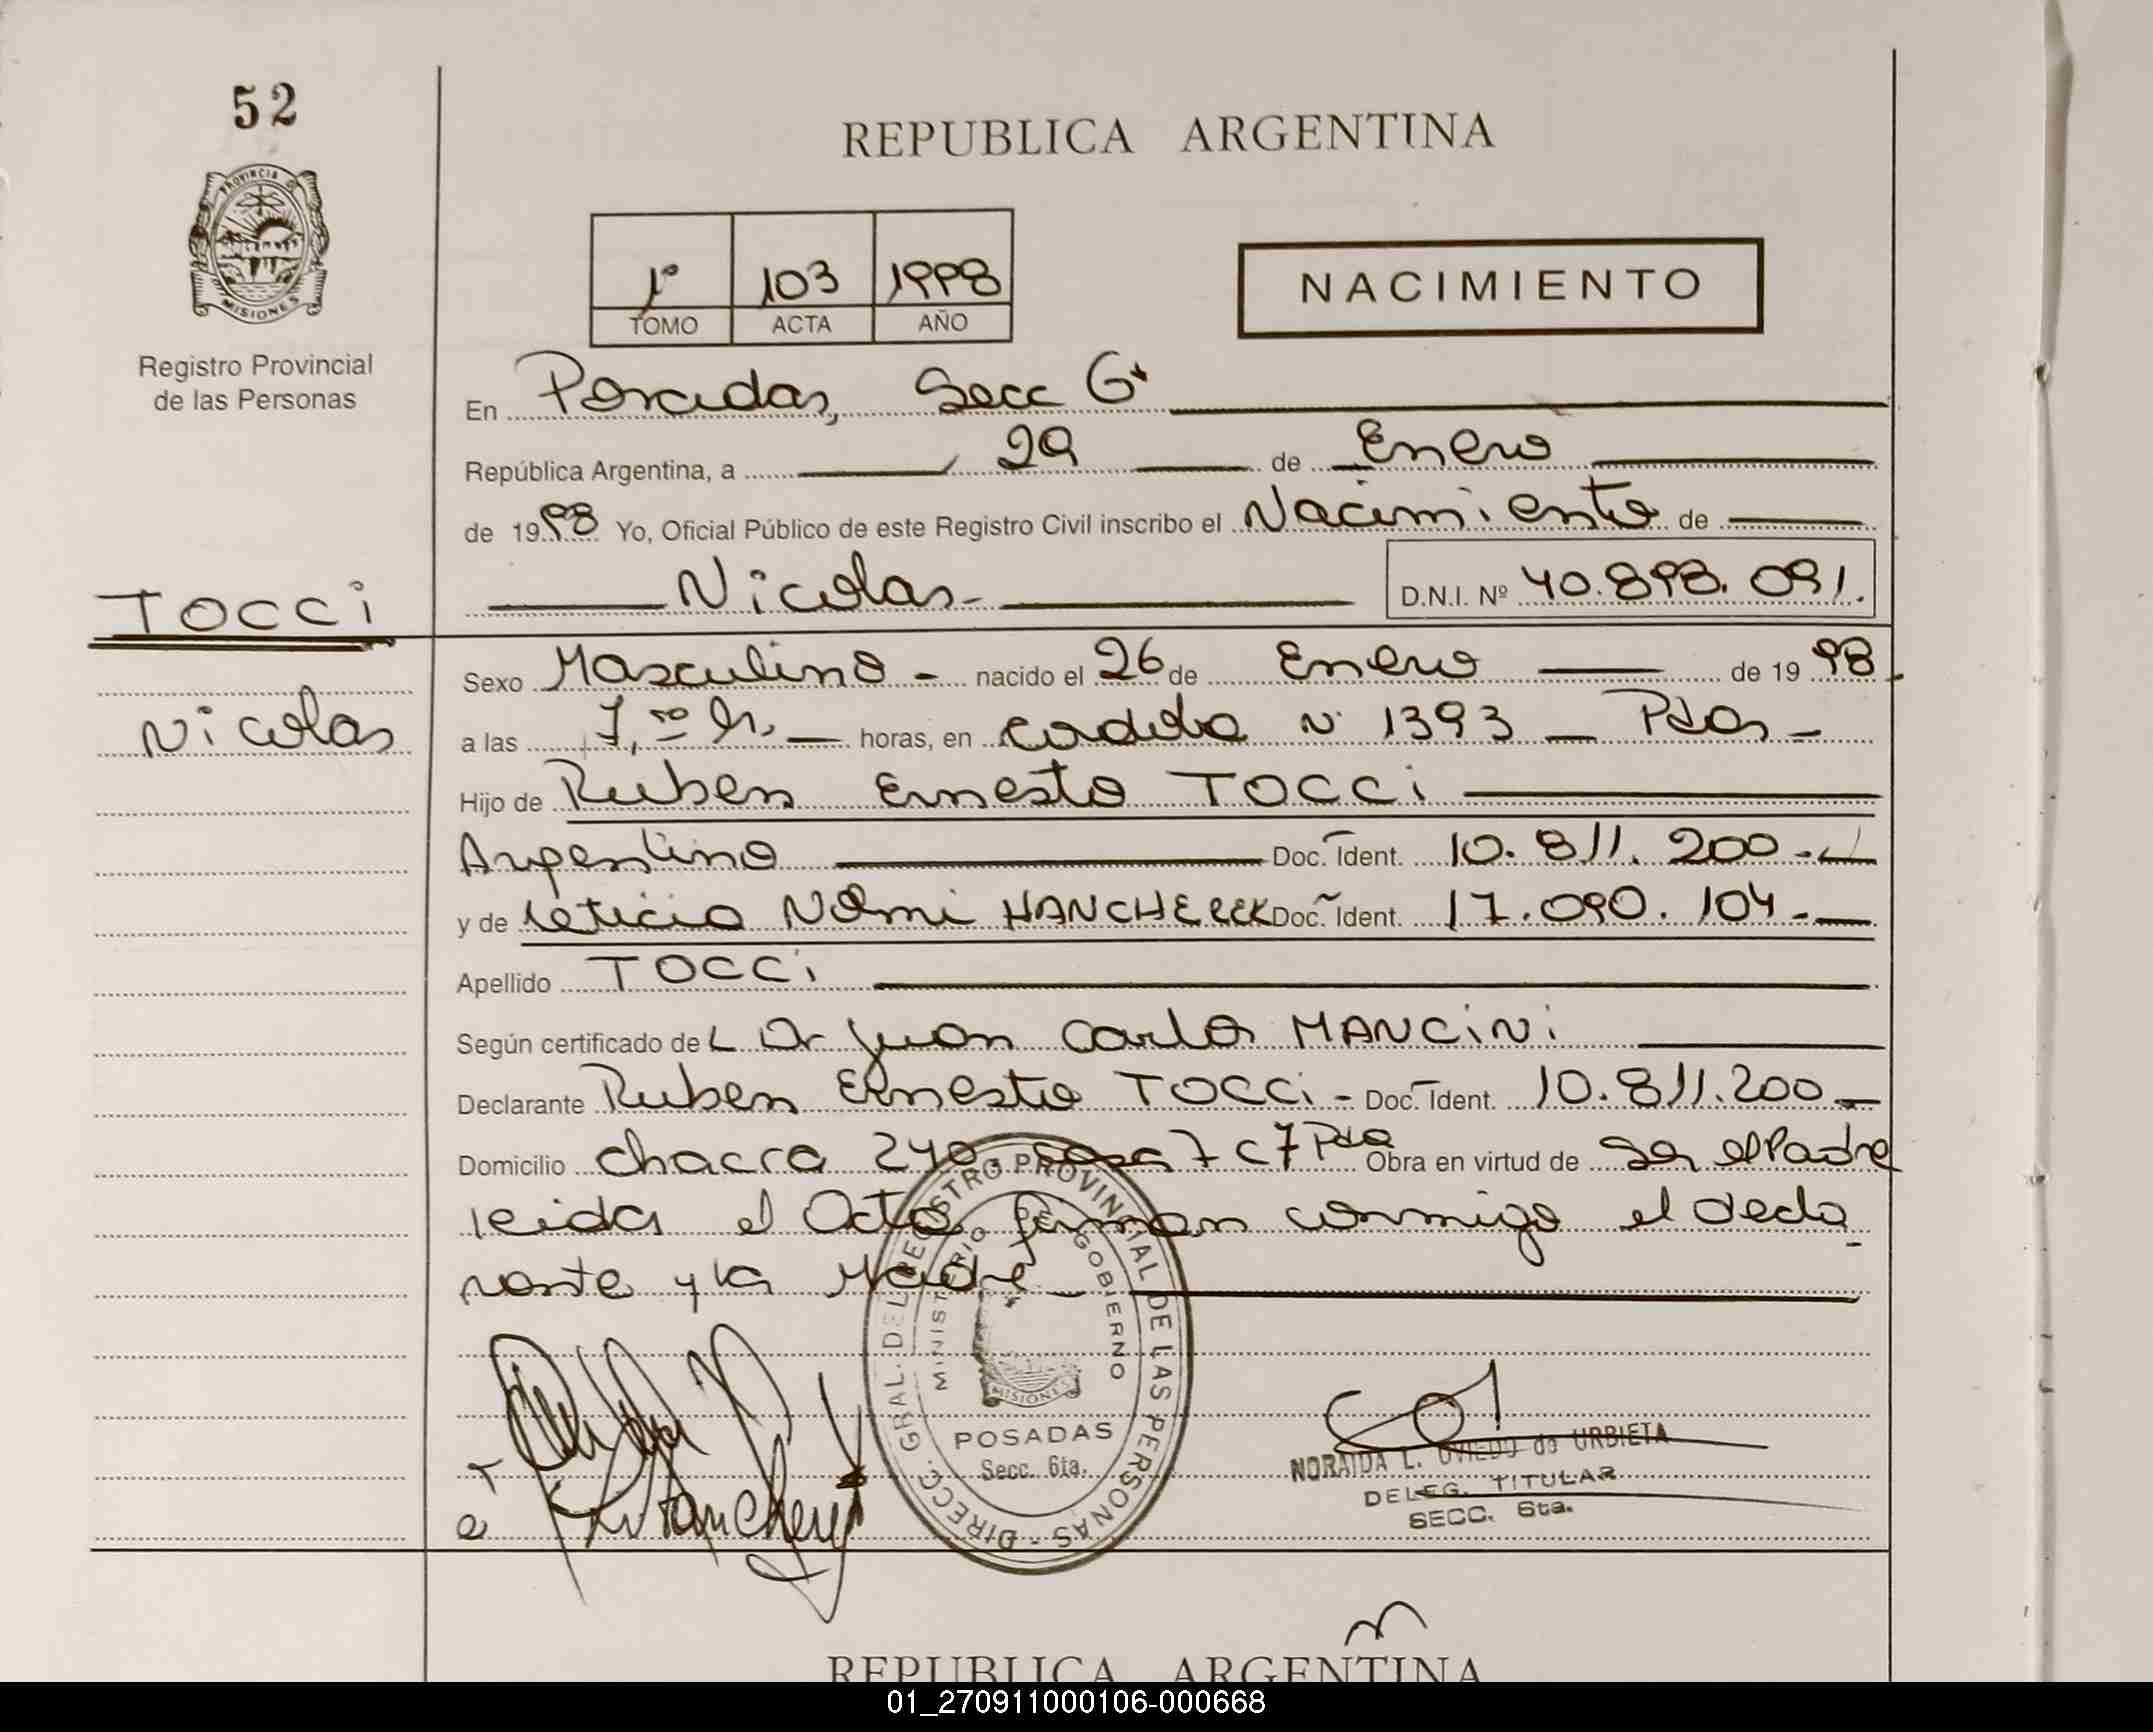 52
REPUBLICA ARGENTINA
PROVINCIA DE MISIONES
Registro Provincial
de las Personas
1º 103 1998
TOMO ACTA AÑO
NACIMIENTO
En Posadas, Secc 6ª
República Argentina, a 29 de Enero
de 1998 Yo, Oficial Público de este Registro Civil inscribo el Nacimiento de
Nicolas
D.N.I. Nº 40.898.091.
TOCCi
Nicolas
Sexo Masculino - nacido el 26 de Enero de 1998
a las 7, hs, horas, en Cordoba Nº 1393 - Pdas -
Hijo de Ruben Ernesto TOCCi
Argentino Doc. Ident. 10.811.200 -
y de Leticia Nomi Doc. Ident. 17.090.104 -
Apellido TOCCi
Según certificado del Dr Juan Carlos MANCiNi
Declarante Ruben Ernesto TOCCi - Doc. Ident. 10.811.200 -
Domicilio chacra 240 7 C7 Pdas Obra en virtud de Ser el Padre
leida el Acta firman conmigo el decla
rante y la Madre
DIRECC. GRAL. DEL REGISTRO PROVINCIAL DE LAS PERSONAS
MINISTERIO DE GOBIERNO
MISIONES
POSADAS
Secc. 6ta.
NORAIDA L. OVIEDO de URBIETA
DELEG. TITULAR
SECC. 6ta.
REPUBLICA ARGENTINA
01_270911000106-000668